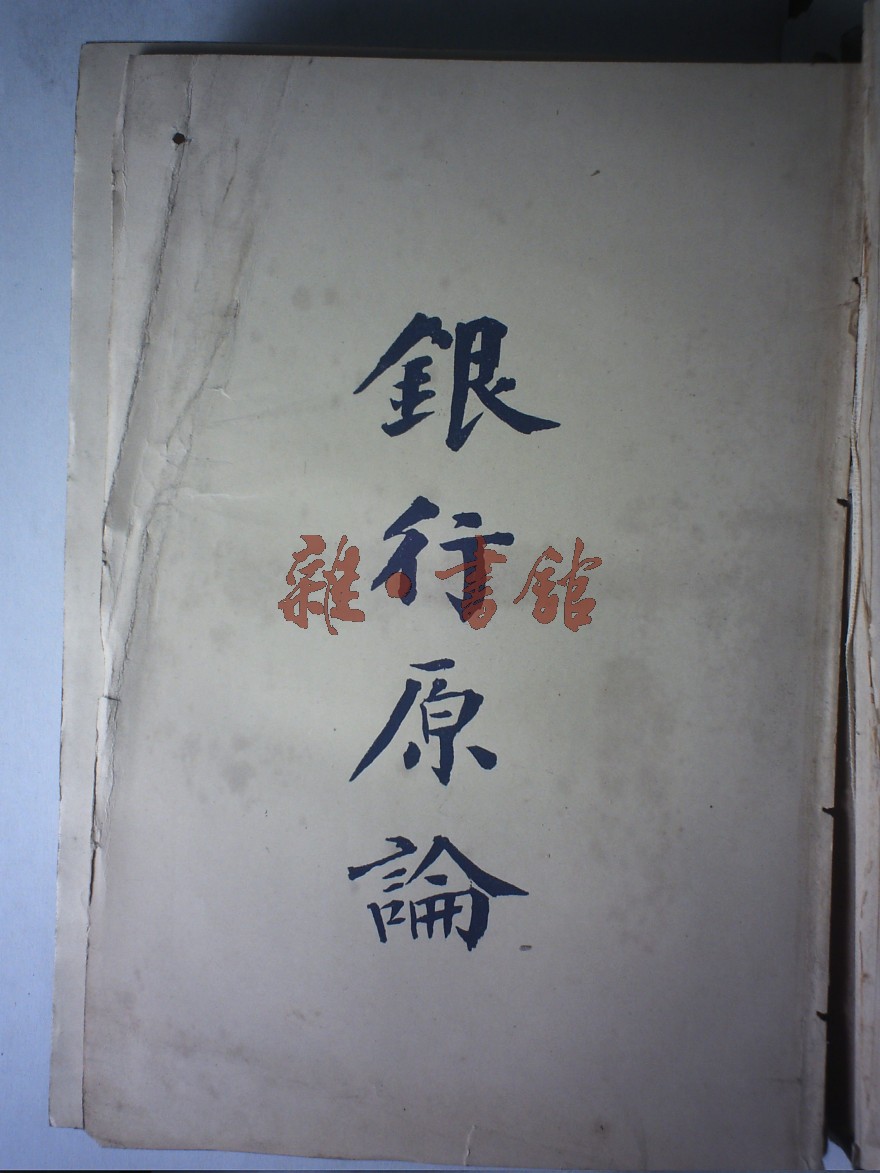 銀行原論
雜·書館